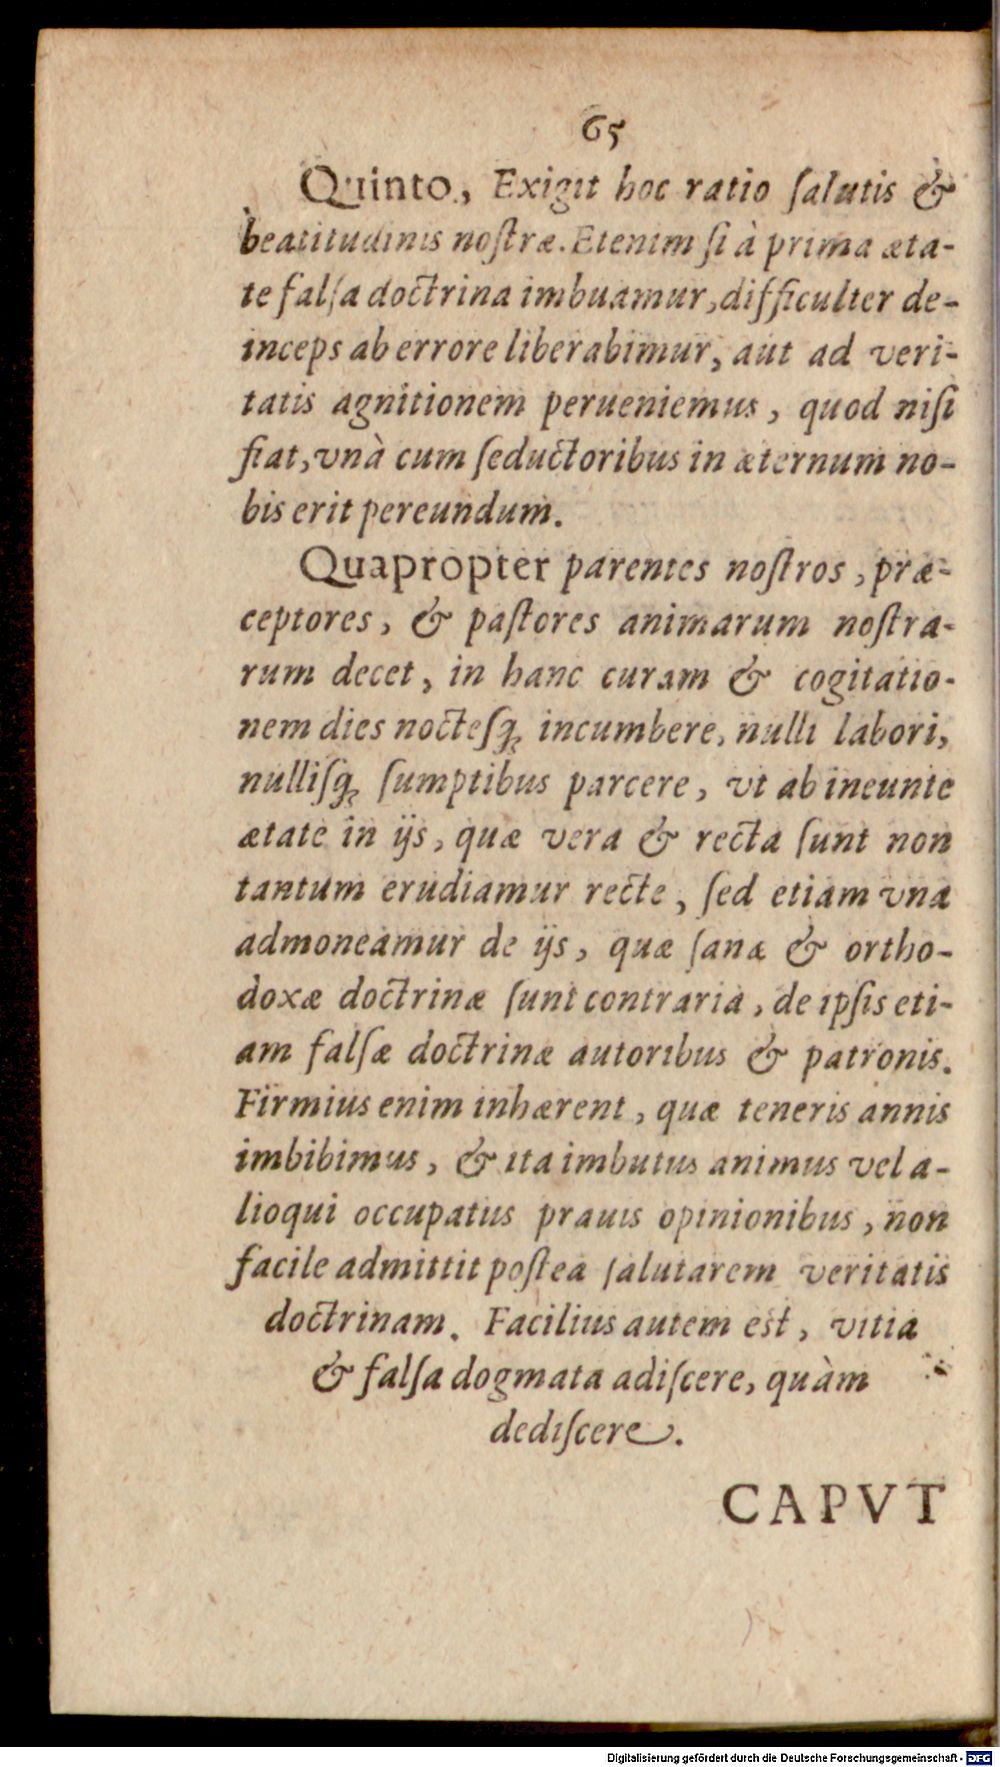 65
Quinto, Exigit hoc ratio ſalutis &
beatitudinis noſtræ. Etenim ſi à prima æta-
te falſa doctrina imbuamur, difficulter de-
inceps ab errore liberabimur, aut ad veri-
tatis agnitionem perueniemus, quod niſi
fiat, vnà cum ſeductoribus in æternum no-
bis erit pereundum.
Quapropter parentes noſtros, præ-
ceptores, & paſtores animarum noſtra-
rum decet, in hanc curam & cogitatio-
nem dies nocteſq́; incumbere, nulli labori,
nulliſq́; ſumptibus parcere, vt ab ineunte
ætate in ijs, quæ vera & recta ſunt non
tantum erudiamur recte, ſed etiam vna
admoneamur de ijs, quæ ſanæ & ortho-
doxæ doctrinæ ſunt contraria, de ipſis eti-
am falſæ doctrinæ autoribus & patronis.
Firmius enim inhærent, quæ teneris annis
imbibimus, & ita imbutus animus vel a-
lioqui occupatus prauis opinionibus, non
facile admittit poſtea ſalutarem veritatis
doctrinam. Facilius autem est, vitia
& falſa dogmata adiſcere, quàm
dediſcere.
CAPVT
Digitalisierung gefördert durch die Deutsche Forschungsgemeinschaft - DFG